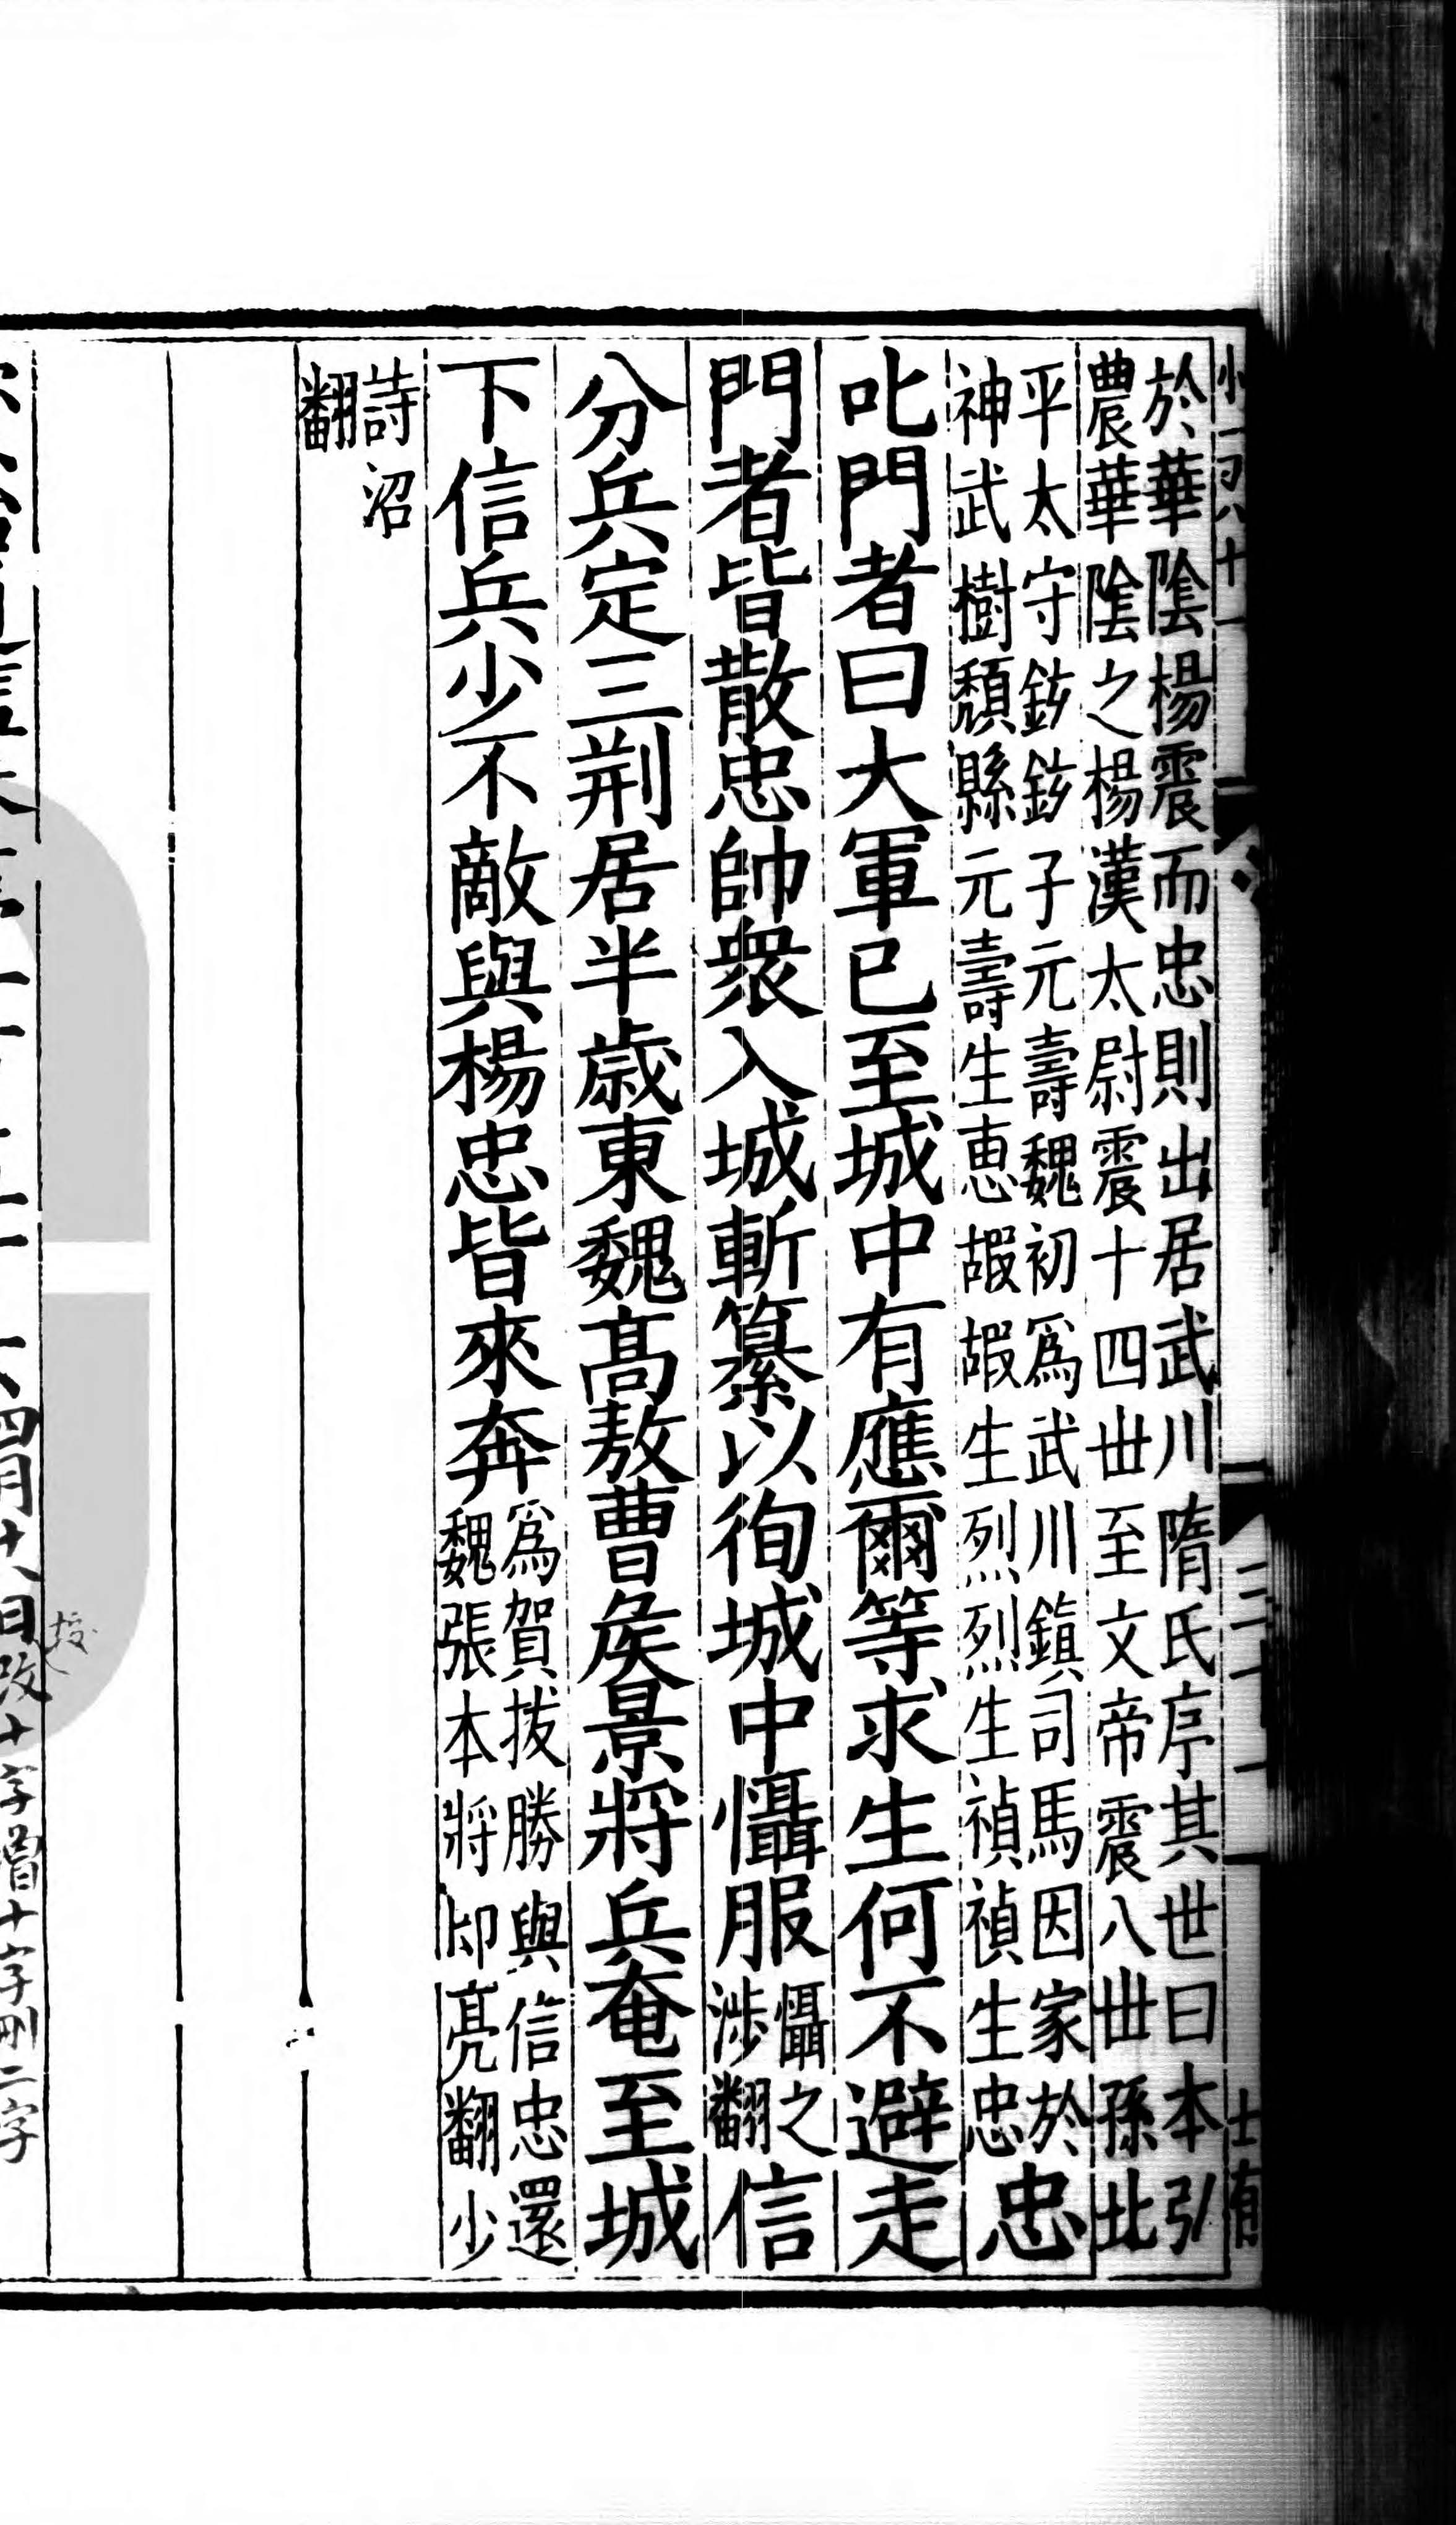 於華陰楊震而忠則出居武川隋氏序其世曰本引
農華陰之楊漢太尉震十四丗至文帝震八丗孫北
平太守鉉鉉子元壽魏初爲武川鎮司馬因家於
神武樹頹縣元壽生恵嘏嘏生烈烈生禎禎生忠
忠
叱門者曰大軍已至城中有應爾等求生何不避走
門者皆散忠帥衆入城斬纂以徇城中懾服
懾之
涉翻
信
分兵定三荆居半歳東魏髙敖曹矦景將兵奄至城
下信兵少不敵與楊忠皆來奔
爲賀拔勝與信忠還
魏張本將即亮翻少
詩沼
翻
四月十八日改十字增十字刪二字